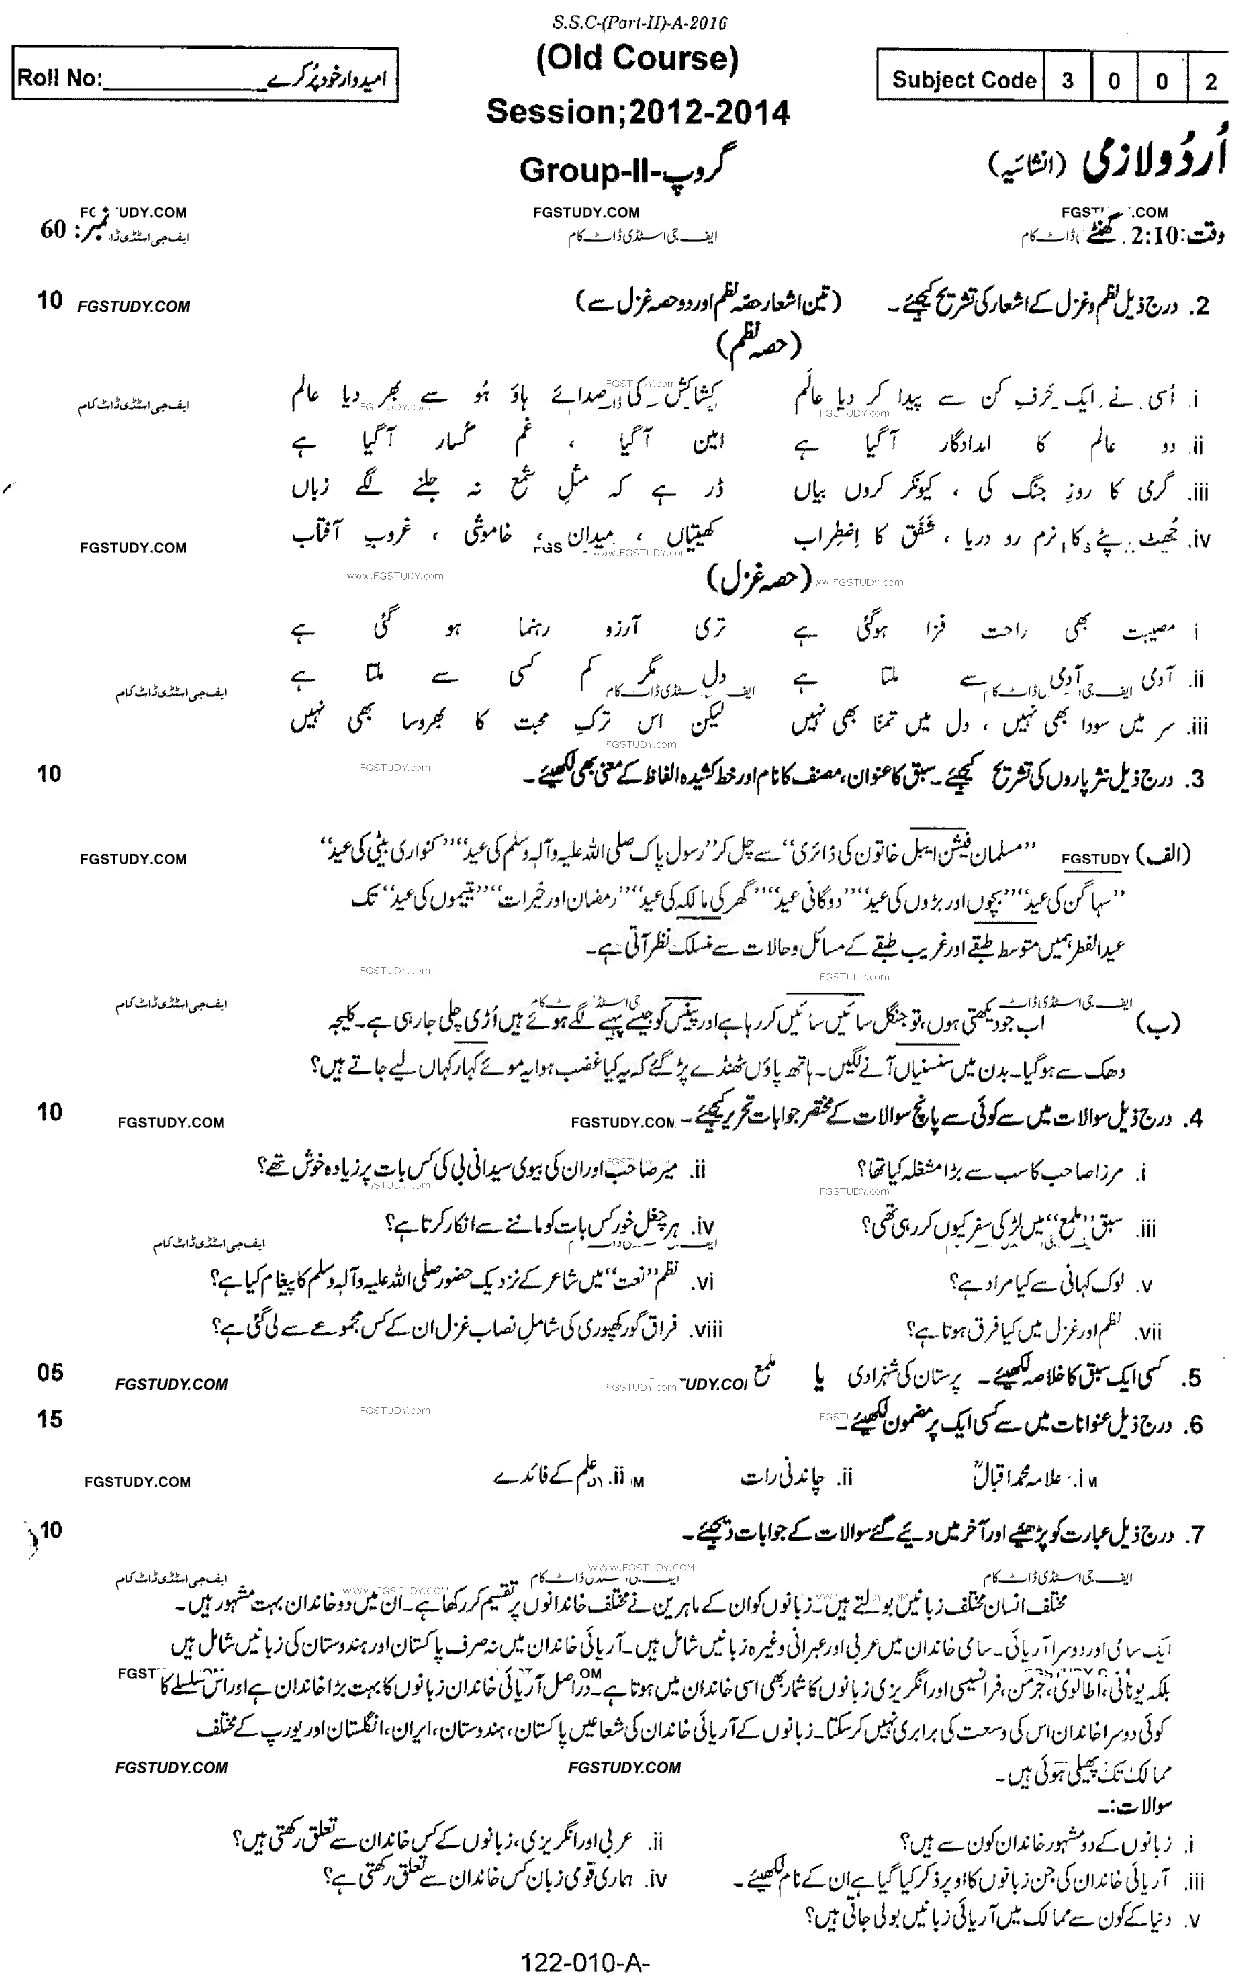 S.S.C-(Part-II)-A-2016
(Old Course)
Roll No:____________ امیدوار خود پُر کرے
Subject Code 3 0 0 2
Session;2012-2014
اُردو لازمی (انشائیہ)
Group-II-گروپ
UDY.COM FGSTUDY.COM .COM
وقت:2:10 گھنٹے ایف جی اسٹڈی ڈاٹ کام نمبر: 60
2. درج ذیل نظم و غزل کے اشعار کی تشریح کیجئے۔ (تین اشعار حصہ نظم اور دو حصہ غزل سے) FGSTUDY.COM 10
(حصہ نظم)
i. اُسی نے ایک حَرفِ کن سے پیدا کر دیا عالَم کشاکش کی صدائے ہاؤ ہُو سے بھر دیا عالم
ایف جی اسٹڈی ڈاٹ کام
ii. دو عالم کا امدادگار آ گیا ہے امین آ گیا ، غم گسار آ گیا ہے
iii. گرمی کا روزِ جنگ کی ، کیونکر کروں بیاں ڈر ہے کہ مثلِ شمع نہ جلنے لگے زباں
iv. جُھٹ پٹے کا نرم رو دریا ، شَفَق کا اِضطِراب کھیتیاں ، میدان ، خاموشی ، غروبِ آفتاب
FGSTUDY.COM
(حصہ غزل)
www.FGSTUDY.com
i مصیبت بھی راحت فزا ہو گئی ہے تری آرزو رہنما ہو گئی ہے
ii. آدمی آدمی سے ملتا ہے دل مگر کم کسی سے ملتا ہے
ایف جی اسٹڈی ڈاٹ کام
iii. سر میں سودا بھی نہیں ، دل میں تمنا بھی نہیں لیکن اس ترکِ محبت کا بھروسا بھی نہیں
FGSTUDY.com
3. درج ذیل نثر پاروں کی تشریح کیجئے۔ سبق کا عنوان، مصنف کا نام اور خط کشیدہ الفاظ کے معنی بھی لکھیئے۔ 10
(الف) FGSTUDY ’’مسلمان فیشن ایبل خاتون کی ڈائری‘‘ سے چل کر ’’رسول پاک صلی اللہ علیہ وآلہ وسلم کی عید‘‘ ’’کنواری بیٹی کی عید‘‘
FGSTUDY.COM
’’سہاگن کی عید‘‘ ’’بچوں اور بڑوں کی عید‘‘ ’’دوگانی عید‘‘ ’’گھر کی مالکہ کی عید‘‘ ’’رمضان اور خیرات‘‘ ’’یتیموں کی عید‘‘ تک
عید الفطر ہمیں متوسط طبقے اور غریب طبقے کے مسائل و حالات سے منسلک نظر آتی ہے۔
FGSTUDY.com
(ب) اب جو دیکھتی ہوں، تو جنگل سائیں سائیں کر رہا ہے اور پینس کو جیسے پہیے لگے ہوئے ہیں اُڑی چلی جا رہی ہے۔ کلیجہ
ایف جی اسٹڈی ڈاٹ کام
دھک سے ہو گیا۔ بدن میں سنسنیاں آنے لگیں۔ ہاتھ پاؤں ٹھنڈے پڑ گئے کہ یہ کیا غضب ہوا یہ موئے کہار کہاں لیے جاتے ہیں؟
4. درج ذیل سوالات میں سے کوئی سے پانچ سوالات کے مختصر جوابات تحریر کیجئے۔ FGSTUDY.COM 10
i. مرزا صاحب کا سب سے بڑا مشغلہ کیا تھا؟ ii. میر صاحب اور ان کی بیوی سیدانی بی کی کس بات پر زیادہ خوش تھے؟
iii. سبق ’’ملمع‘‘ میں لڑکی سفر کیوں کر رہی تھی؟ iv. ہر چغل خور کس بات کو ماننے سے انکار کرتا ہے؟
ایف جی اسٹڈی ڈاٹ کام
v. لوک کہانی سے کیا مراد ہے؟ vi. نظم ’’نعت‘‘ میں شاعر کے نزدیک حضور صلی اللہ علیہ وآلہ وسلم کا پیغام کیا ہے؟
vii. نظم اور غزل میں کیا فرق ہوتا ہے؟ viii. فراق گورکھپوری کی شامل نصاب غزل ان کے کس مجموعے سے لی گئی ہے؟
5. کسی ایک سبق کا خلاصہ لکھیئے۔ پرستان کی شہزادی یا ملمع FGSTUDY.COM 05
6. درج ذیل عنوانات میں سے کسی ایک پر مضمون لکھیئے۔ 15
i. علامہ محمد اقبالؒ ii. چاندنی رات ii. علم کے فائدے
FGSTUDY.COM
7. درج ذیل عبارت کو پڑھیئے اور آخر میں دیئے گئے سوالات کے جوابات دیجئے۔ 10
ایف جی اسٹڈی ڈاٹ کام
مختلف انسان مختلف زبانیں بولتے ہیں۔ زبانوں کو ان کے ماہرین نے مختلف خاندانوں پر تقسیم کر رکھا ہے۔ ان میں دو خاندان بہت مشہور ہیں۔
ایک سامی اور دوسرا آریائی۔ سامی خاندان میں عربی اور عبرانی وغیرہ زبانیں شامل ہیں۔ آریائی خاندان میں نہ صرف پاکستان اور ہندوستان کی زبانیں شامل ہیں
بلکہ یونانی، اطالوی، جرمن، فرانسیسی اور انگریزی زبانوں کا شمار بھی اسی خاندان میں ہوتا ہے۔ دراصل آریائی خاندان زبانوں کا بہت بڑا خاندان ہے اور اس سلسلے کا
کوئی دوسرا خاندان اس کی وسعت کی برابری نہیں کر سکتا۔ زبانوں کے آریائی خاندان کی شعاعیں پاکستان، ہندوستان، ایران، انگلستان اور یورپ کے مختلف
ممالک تک پھیلی ہوئی ہیں۔
FGSTUDY.COM FGSTUDY.COM
سوالات:۔
i. زبانوں کے دو مشہور خاندان کون سے ہیں؟ ii. عربی اور انگریزی، زبانوں کے کس خاندان سے تعلق رکھتی ہیں؟
iii. آریائی خاندان کی جن زبانوں کا اوپر ذکر کیا گیا ہے ان کے نام لکھیئے۔ iv. ہماری قومی زبان کس خاندان سے تعلق رکھتی ہے؟
v. دنیا کے کون سے ممالک میں آریائی زبانیں بولی جاتی ہیں؟
122-010-A-